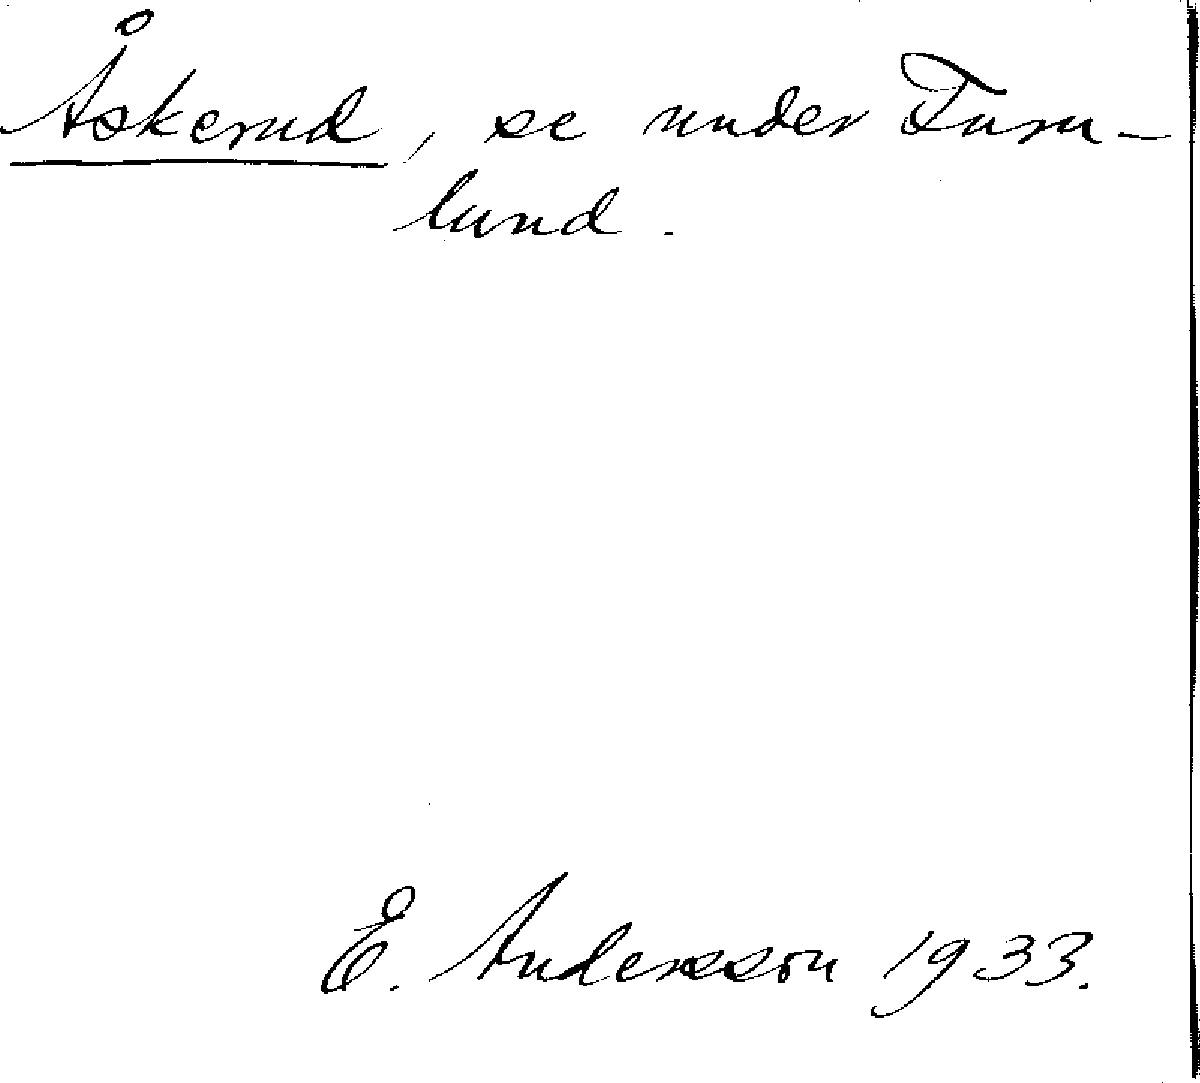 Åskerud, se under Furu-
lund.
E. Andersson 1933.